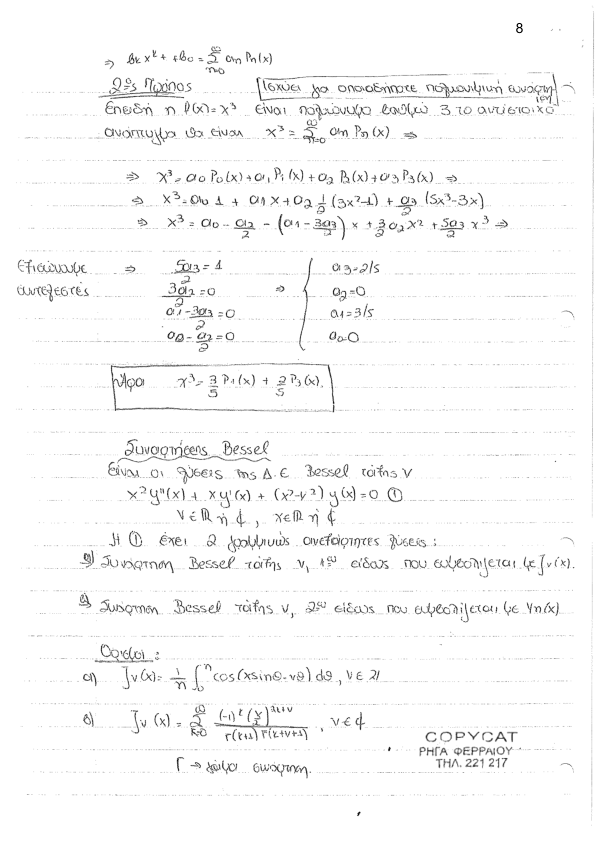 8
⇒ bκ x^κ + ... + b0 = Σ_{n=0}^{∞} an Pn(x)
2ος Τρόπος [Ισχύει για οποιαδήποτε πολυωνυμική συνάρτηση]
Επειδή η f(x)=x³ είναι πολυώνυμο βαθμού 3 το αντίστοιχο
ανάπτυγμα θα είναι x³ = Σ_{n=0}^{∞} an Pn(x) ⇒
⇒ x³ = a0 P0(x) + a1 P1(x) + a2 P2(x) + a3 P3(x) ⇒
⇒ x³ = a0 1 + a1 x + a2 1/2 (3x²-1) + a3/2 (5x³-3x)
⇒ x³ = a0 - a2/2 - (a1 - 3a3/2) x + 3/2 a2 x² + 5a3/2 x³ ⇒
Εξισώνουμε ⇒ 5a3/2 = 1 a3 = 2/5
συντελεστές 3a2/2 = 0 ⇒ a2 = 0
a1 - 3a3/2 = 0 a1 = 3/5
a0 - a2/2 = 0 a0 = 0
Άρα x³ = 3/5 P1(x) + 2/5 P3(x).
Συναρτήσεις Bessel
Είναι οι λύσεις της Δ.Ε Bessel τάξης ν
x² y''(x) + x y'(x) + (x²-ν²) y(x) = 0 ①
ν ∈ ℝ ή ℂ, x ∈ ℝ ή ℂ
Η ① έχει 2 γραμμικώς ανεξάρτητες λύσεις:
Συνάρτηση Bessel τάξης ν, 1ου είδους που συμβολίζεται με Jν(x).
Συνάρτηση Bessel τάξης ν, 2ου είδους που συμβολίζεται με Yn(x)
Ορισμοί:
α) Jν(x) = 1/π ∫_0^π cos(x sinθ - νθ) dθ, ν ∈ ℤ
β) Jν(x) = Σ_{k=0}^{∞} (-1)^k (x/2)^{2k+ν} / Γ(k+1) Γ(k+ν+1), ν ∈ ℂ
Γ → γάμμα συνάρτηση.
COPYCAT
ΡΗΓΑ ΦΕΡΡΑΙΟΥ
ΤΗΛ. 221 217